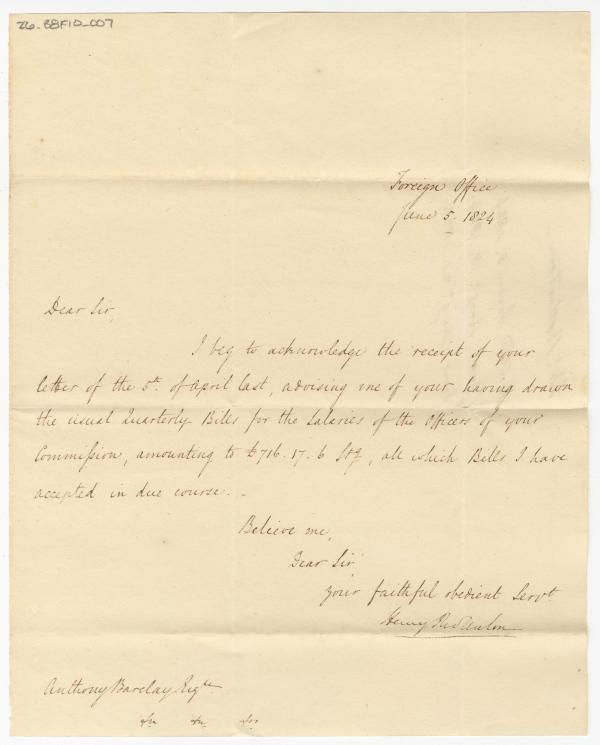 26-BBF10-007
Foreign Office
June 5. 1824
Dear Sir,
I beg to acknowledge the receipt of your
letter of the 5th. of April last, advising me of your having drawn
the usual Quarterly Bills for the Salaries of the Officers of your
Commission, amounting to £716. 17. 6 Stg, all which Bills I have
accepted in due course. -
Believe me,
Dear Sir
your faithful obedient Servt.
Henry
Anthony Barclay Esqre.